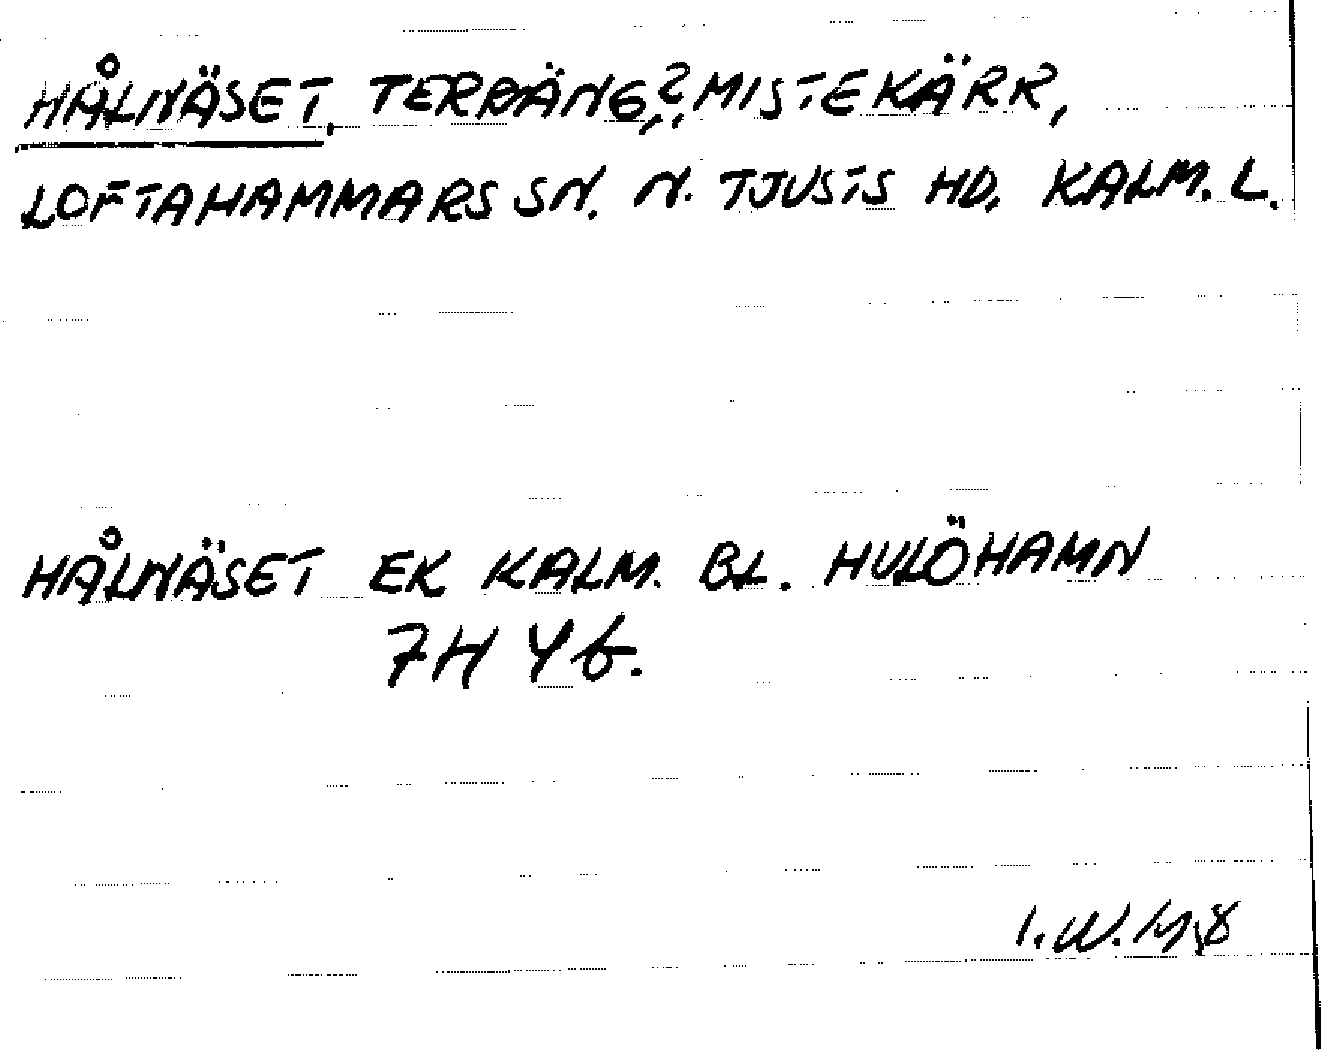 HÅLNÄSET, TERRÄNG,?, MISTEKÄRR,
LOFTAHAMMARS SN. N. TJUSTS HD, KALM. L.
HÅLNÄSET EK KALM. BL. HULÖHAMN
7H 4b.
I.W.